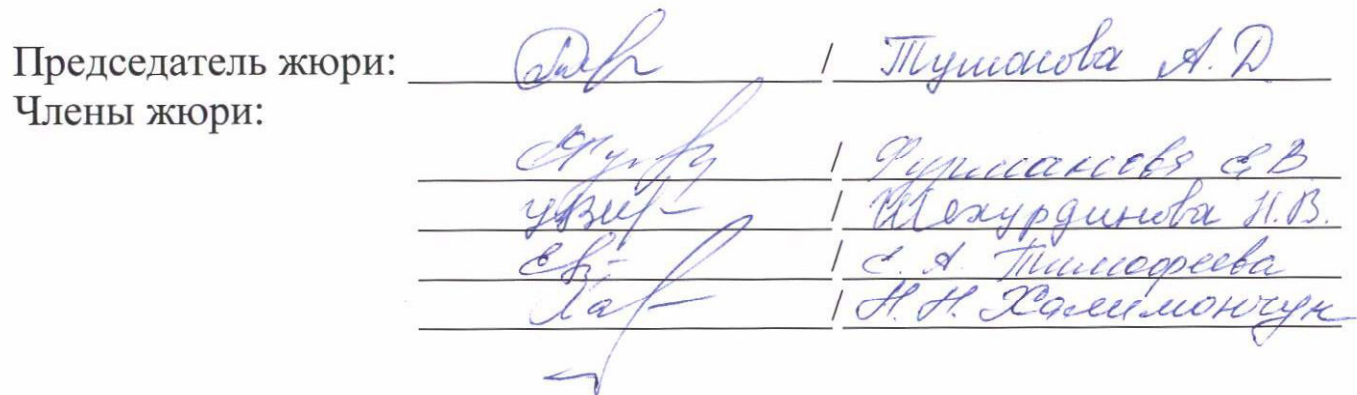 Председатель жюри: / Туманова А. Д
Члены жюри:
/ Фурманова Е. В.
/ Шехурдинова Н. В.
/ Е. А. Тимофеева
/ Н. Н. Халимончук